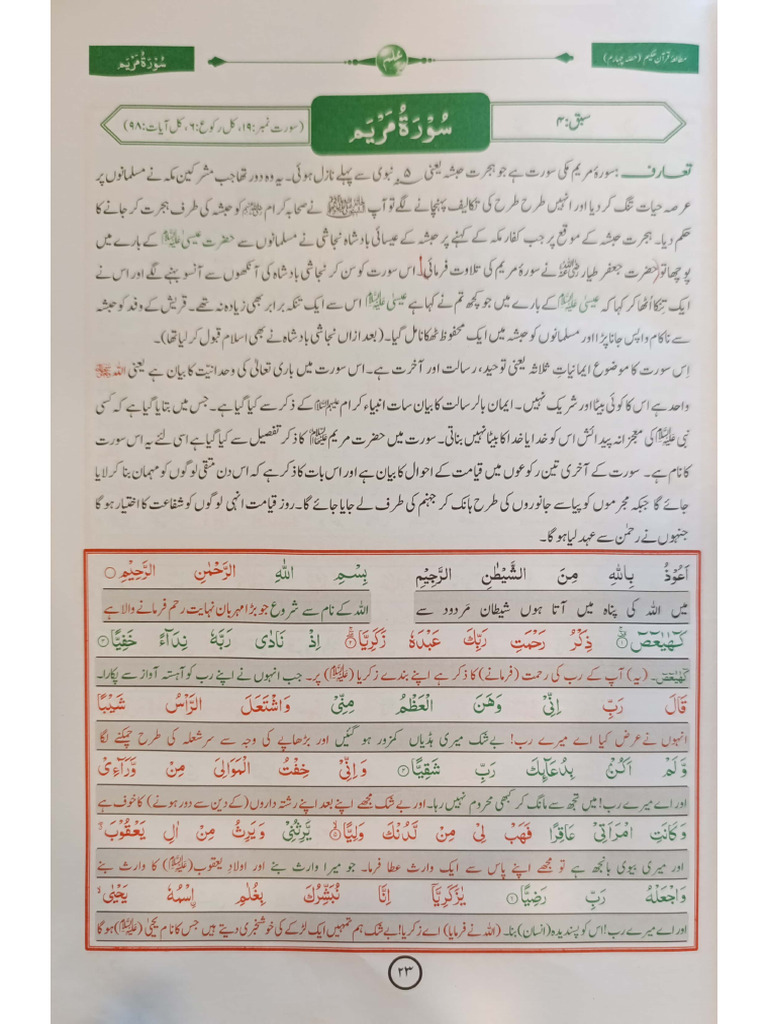 مطالعۂ قرآن حکیم (حصّہ چہارم)
علم
سُوْرَۃُ مَرْیَم
سبق: ۴
سُوْرَۃُ مَرْیَم
(سورت نمبر: ۱۹، کل رکوع: ۶، کل آیات: ۹۸)
تعارف: سورۂ مریم مکی سورت ہے جو ہجرت حبشہ یعنی ۵ نبوی سے پہلے نازل ہوئی۔ یہ وہ دور تھا جب مشرکین مکہ نے مسلمانوں پر
عرصہ حیات تنگ کر دیا اور انہیں طرح طرح کی تکالیف پہنچانے لگے تو آپ ﷺ نے صحابہ کرام کو حبشہ کی طرف ہجرت کر جانے کا
حکم دیا۔ ہجرت حبشہ کے موقع پر جب کفار مکہ کے کہنے پر حبشہ کے عیسائی بادشاہ نجاشی نے مسلمانوں سے حضرت عیسیٰ علیہ السلام کے بارے میں
پوچھا تو حضرت جعفر طیار رضی اللہ عنہ نے سورۂ مریم کی تلاوت فرمائی۔ اس سورت کو سن کر نجاشی بادشاہ کی آنکھوں سے آنسو بہنے لگے اور اس نے
ایک تنکا اُٹھا کر کہا کہ عیسیٰ علیہ السلام کے بارے میں جو کچھ تم نے کہا ہے عیسیٰ علیہ السلام اس سے ایک تنکہ برابر بھی زیادہ نہ تھے۔ قریش کے وفد کو حبشہ
سے ناکام واپس جانا پڑا اور مسلمانوں کو حبشہ میں ایک محفوظ ٹھکانا مل گیا۔ (بعد ازاں نجاشی بادشاہ نے بھی اسلام قبول کر لیا تھا)۔
اِس سورت کا موضوع ایمانیاتِ ثلاثہ یعنی توحید، رسالت اور آخرت ہے۔ اس سورت میں باری تعالیٰ کی وحدانیّت کا بیان ہے یعنی اللہ
واحد ہے اس کا کوئی بیٹا اور شریک نہیں۔ ایمان بالرسالت کا بیان سات انبیاء کرام علیہم السلام کے ذکر سے کیا گیا ہے۔ جس میں بتایا گیا ہے کہ کسی
نبی علیہ السلام کی معجزانہ پیدائش اس کو خدا یا خدا کا بیٹا نہیں بناتی۔ سورت میں حضرت مریم کا ذکر تفصیل سے کیا گیا ہے اسی لئے یہ اس سورت
کا نام ہے۔ سورت کے آخری تین رکوعوں میں قیامت کے احوال کا بیان ہے اور اس بات کا ذکر ہے کہ اس دن متقی لوگوں کو مہمان بنا کر لایا
جائے گا جبکہ مجرموں کو پیاسے جانوروں کی طرح ہانک کر جہنم کی طرف لے جایا جائے گا۔ روز قیامت انہی لوگوں کو شفاعت کا اختیار ہو گا
جنہوں نے رحمٰن سے عہد لیا ہو گا۔
اَعُوْذُ بِاللّٰهِ مِنَ الشَّیْطٰنِ الرَّجِیْمِ بِسْمِ اللّٰهِ الرَّحْمٰنِ الرَّحِیْمِ ○
میں اللہ کی پناہ میں آتا ہوں شیطان مردود سے اللہ کے نام سے شروع جو بڑا مہربان نہایت رحم فرمانے والا ہے
كٓهٰیٰعٓصٓ ۱ ذِكْرُ رَحْمَتِ رَبِّكَ عَبْدَهٗ زَكَرِیَّا ۲ اِذْ نَادٰى رَبَّهٗ نِدَآءً خَفِیًّا ۳
كٓهٰیٰعٓصٓ۔ (یہ) آپ کے رب کی رحمت (فرمانے) کا ذکر ہے اپنے بندے زکریا (علیہ السلام) پر۔ جب انہوں نے اپنے رب کو آہستہ آواز سے پکارا۔
قَالَ رَبِّ اِنِّیْ وَهَنَ الْعَظْمُ مِنِّیْ وَاشْتَعَلَ الرَّاْسُ شَیْبًا
انہوں نے عرض کیا اے میرے رب! بےشک میری ہڈیاں کمزور ہو گئیں اور بڑھاپے کی وجہ سے سر شعلہ کی طرح چمکنے لگا
وَّ لَمْ اَكُنْۢ بِدُعَآىِٕكَ رَبِّ شَقِیًّا ۴ وَ اِنِّیْ خِفْتُ الْمَوَالِیَ مِنْ وَّرَآءِیْ
اور اے میرے رب! میں تجھ سے مانگ کر کبھی محروم نہیں رہا۔ اور بےشک مجھے اپنے بعد اپنے رشتہ داروں (کے دین سے دور ہونے) کا خوف ہے
وَ كَانَتِ امْرَاَتِیْ عَاقِرًا فَهَبْ لِیْ مِنْ لَّدُنْكَ وَلِیًّا ۵ یَّرِثُنِیْ وَ یَرِثُ مِنْ اٰلِ یَعْقُوْبَ
اور میری بیوی بانجھ ہے تو مجھے اپنے پاس سے ایک وارث عطا فرما۔ جو میرا وارث بنے اور اولادِ یعقوب (علیہ السلام) کا وارث بنے
وَ اجْعَلْهُ رَبِّ رَضِیًّا ۶ یٰزَكَرِیَّاۤ اِنَّا نُبَشِّرُكَ بِغُلٰمِ اِ۟سْمُهٗ یَحْیٰى
اور اے میرے رب! اس کو پسندیدہ (انسان) بنا۔ (اللہ نے فرمایا) اے زکریا! بےشک ہم تمہیں ایک لڑکے کی خوشخبری دیتے ہیں جس کا نام یحییٰ (علیہ السلام) ہو گا
۲۳